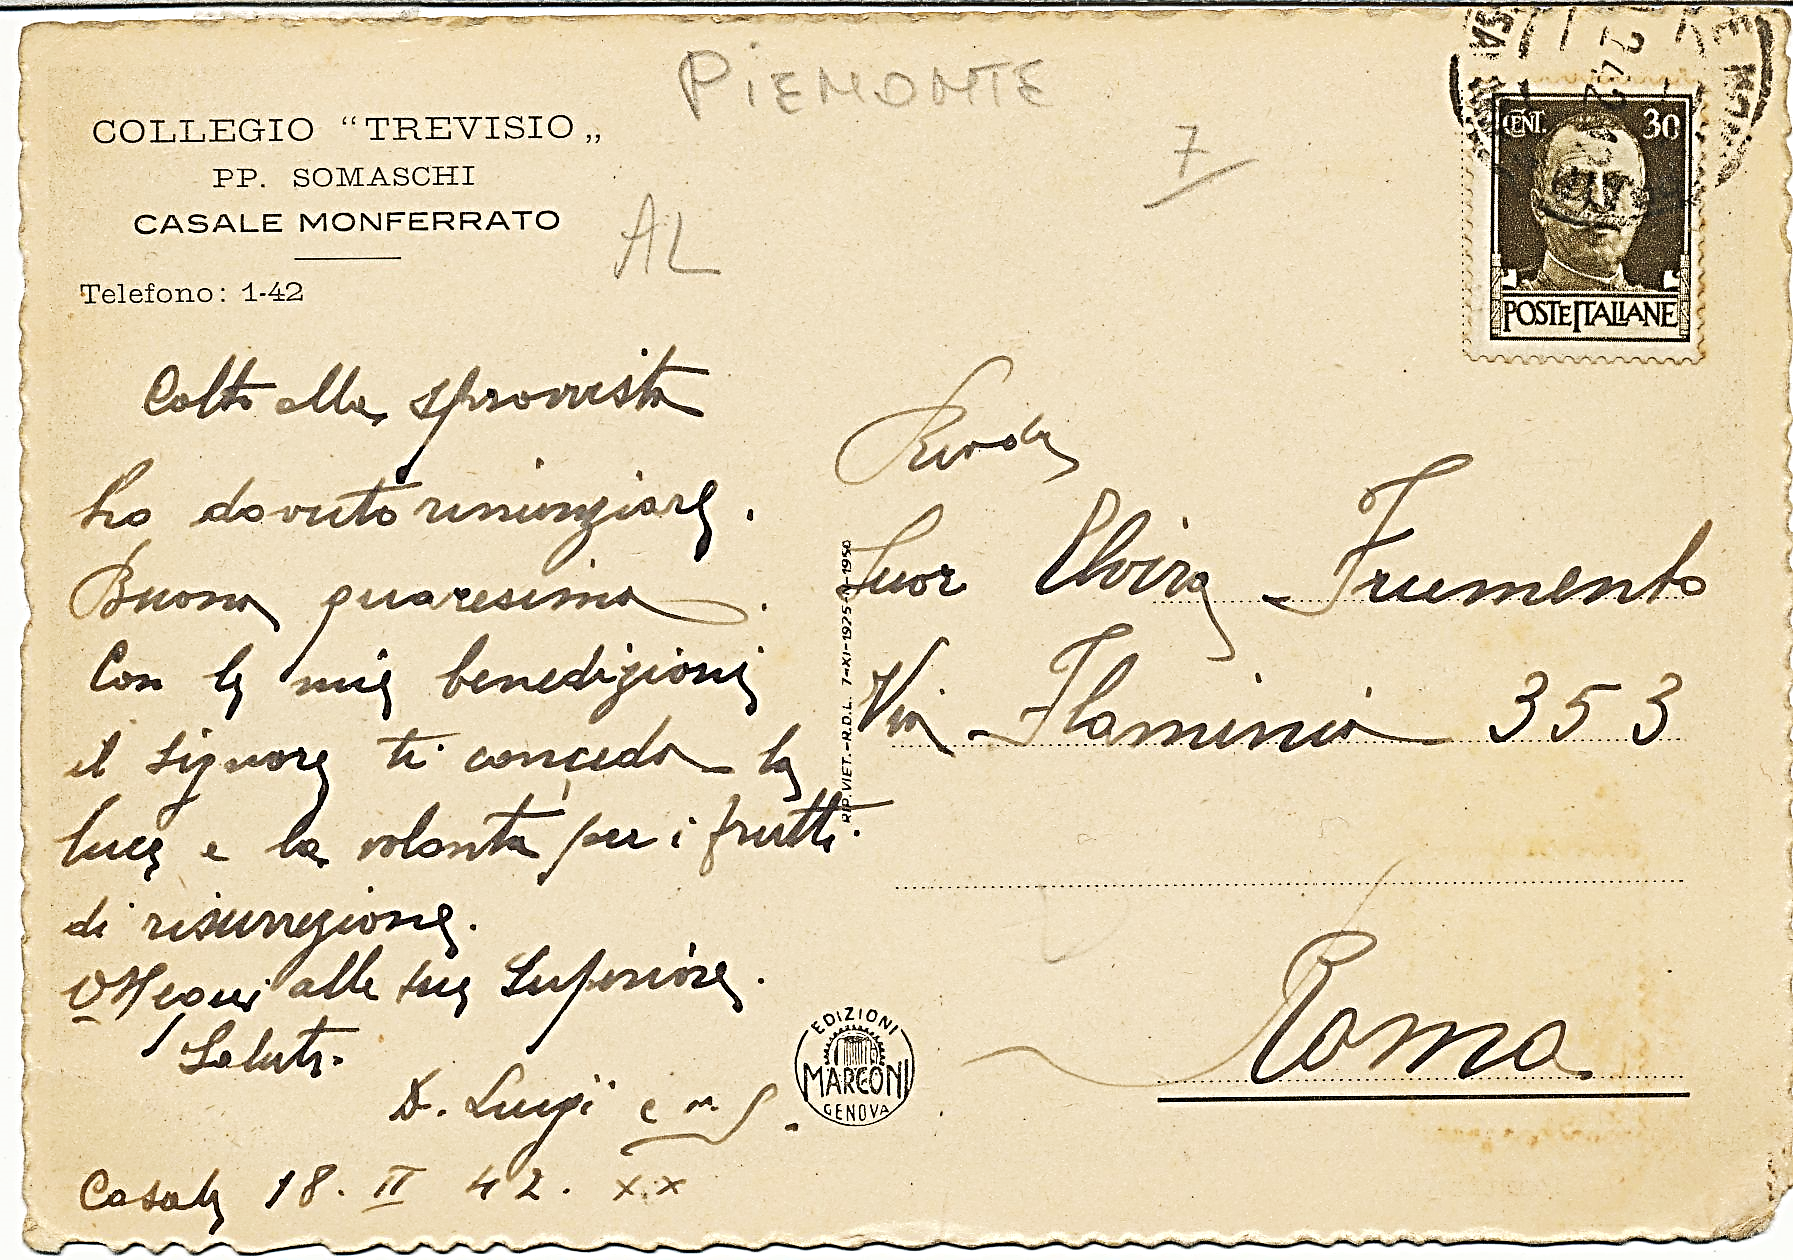 PIEMONTE
COLLEGIO “TREVISIO„
PP. SOMASCHI
CASALE MONFERRATO
AL
Telefono: 1-42
7
CENT. 30
POSTE ITALIANE
Colto alla sprovvista
ho dovuto rinunziare.
Buona quaresima.
Con le mie benedizioni
il Signore ti conceda la
luce e la volontà per i frutti
di risurrezione.
Ossequi alle tue Superiore.
Saluti.
D. Luigi
Casale 18. II 42. XX
Rev.da
Suor Elvira Frumento
Via Flaminia 353
Roma
RIP. VIET. - R.D.L. 7-XI-1925-N-1950
EDIZIONI
MARCONI
GENOVA